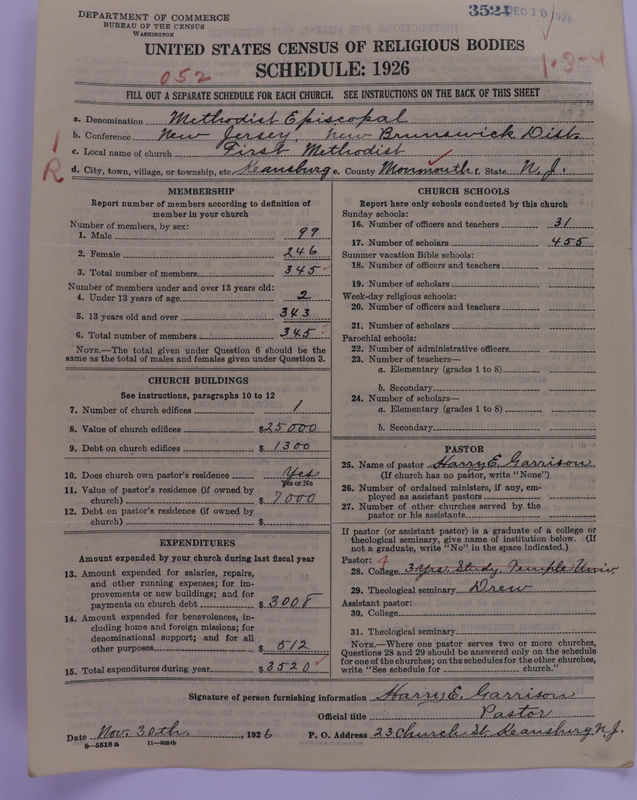 DEPARTMENT OF COMMERCE
BUREAU OF THE CENSUS
WASHINGTON
3524 DEC 10 1926
UNITED STATES CENSUS OF RELIGIOUS BODIES
SCHEDULE: 1926
052
1-3-4
FILL OUT A SEPARATE SCHEDULE FOR EACH CHURCH. SEE INSTRUCTIONS ON THE BACK OF THIS SHEET
a. Denomination Methodist Episcopal
b. Conference New Jersey, New Brunswick Dist.
c. Local name of church First Methodist
d. City, town, village, or township, etc. Keansburg e. County Monmouth f. State N. J.
1
R
MEMBERSHIP
Report number of members according to definition of member in your church
Number of members, by sex:
1. Male 99
2. Female 246
3. Total number of members 345
Number of members under and over 13 years old:
4. Under 13 years of age 2
5. 13 years old and over 343
6. Total number of members 345
NOTE.—The total given under Question 6 should be
same as the total of males and females given under Question 3.
CHURCH BUILDINGS
See instructions, paragraphs 10 to 12
7. Number of church edifices 1
8. Value of church edifices $25000
9. Debt on church edifices $1300
10. Does church own pastor's residence Yes
Yes or No
11. Value of pastor's residence (if owned by
church) $7000
12. Debt on pastor's residence (if owned by
church) $
EXPENDITURES
Amount expended by your church during last fiscal year
13. Amount expended for salaries, repairs,
and other running expenses; for im-
provements or new buildings; and for
payments on church debt $3008
14. Amount expended for benevolences, in-
cluding home and foreign missions; for
denominational support; and for all
other purposes $512
15. Total expenditures during year $3520
CHURCH SCHOOLS
Report here only schools conducted by this church
Sunday schools:
16. Number of officers and teachers 31
17. Number of scholars 455
Summer vacation Bible schools:
18. Number of officers and teachers
19. Number of scholars
Week-day religious schools:
20. Number of officers and teachers
21. Number of scholars
Parochial schools:
22. Number of administrative officers
23. Number of teachers—
a. Elementary (grades 1 to 8)
b. Secondary
24. Number of scholars—
a. Elementary (grades 1 to 8)
b. Secondary
PASTOR
25. Name of pastor Harry E. Garrison
(If church has no pastor, write "None")
26. Number of ordained ministers, if any, em-
ployed as assistant pastors
27. Number of other churches served by the
pastor or his assistants
If pastor (or assistant pastor) is a graduate of a college or
theological seminary, give name of institution below. (If
not a graduate, write "No" in the space indicated.)
Pastor: 4
28. College 3 Yrs. Study Temple Univ
29. Theological seminary Drew
Assistant pastor:
30. College
31. Theological seminary
NOTE.—Where one pastor serves two or more churches,
Questions 28 and 29 should be answered only on the schedule
for one of the churches; on the schedules for the other churches,
write "See schedule for church."
Signature of person furnishing information Harry E. Garrison
Official title Pastor
Date Nov. 30th, 1926 P. O. Address 23 Church St. Keansburg N. J.
8—5518a 11—9084b